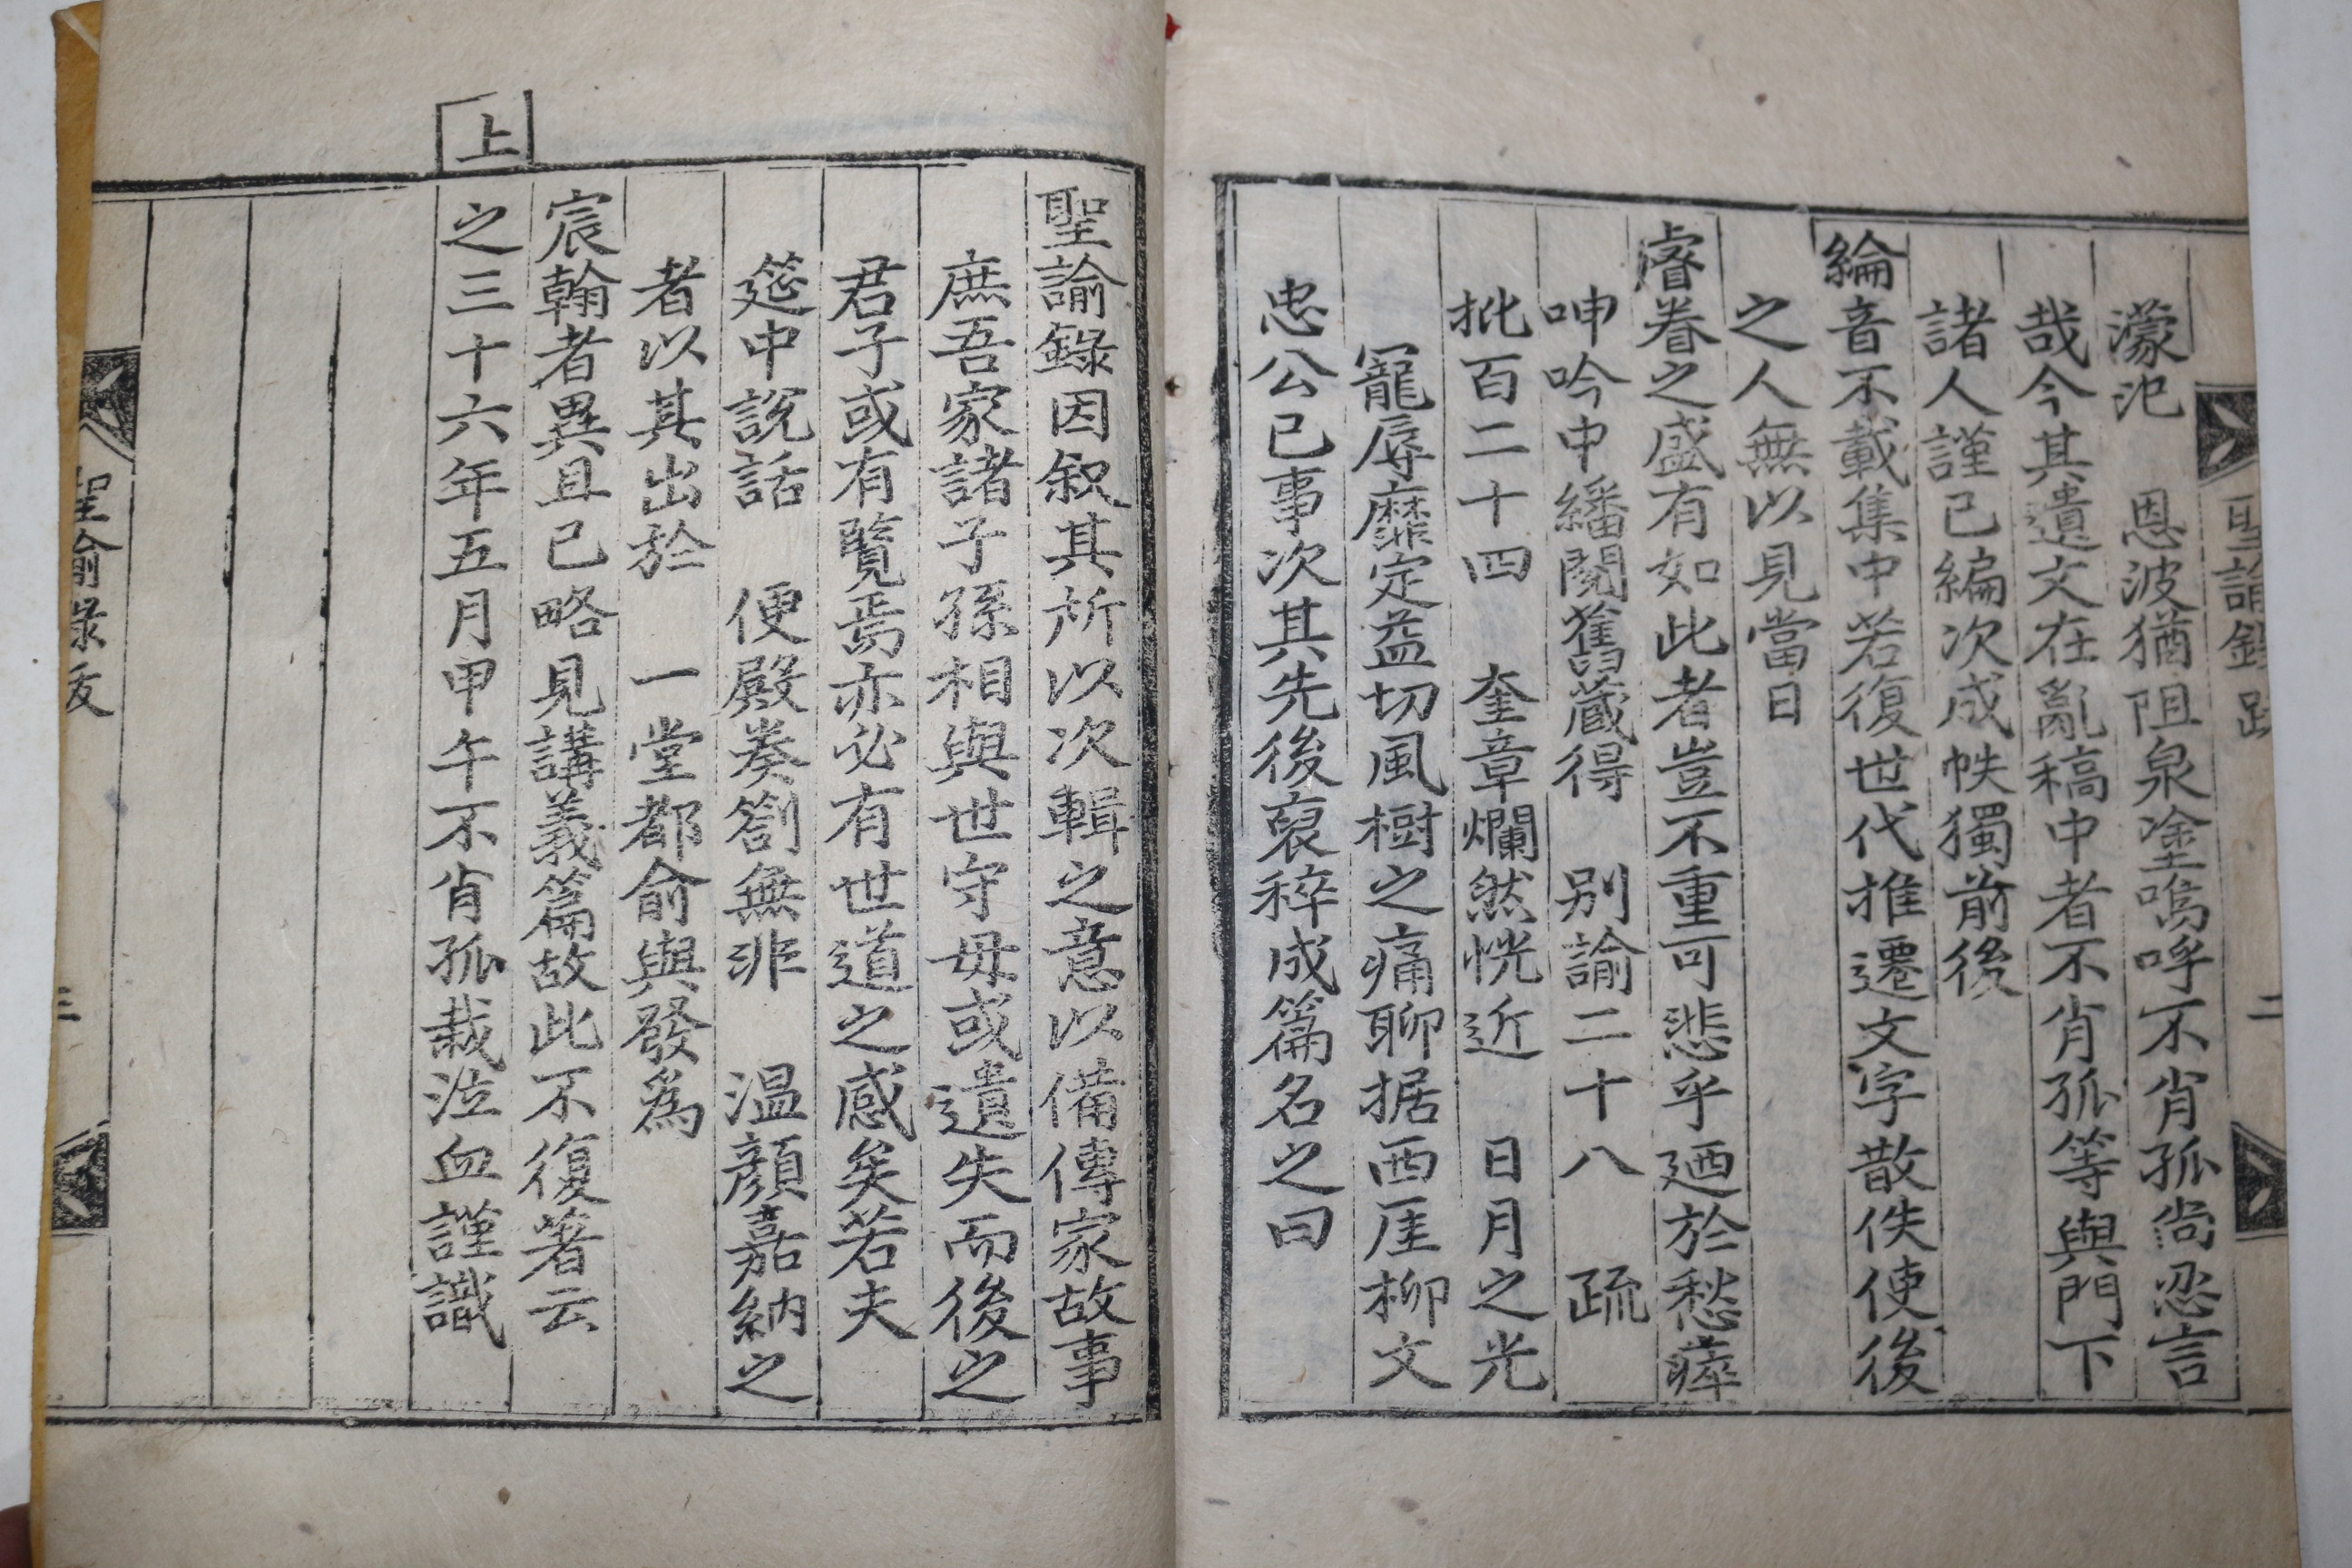 聖諭錄跋
二
濛汜 恩波猶阻泉塗嗚呼不肖孤尚忍言
哉今其遺文在亂稿中者不肖孤等與門下
諸人謹已編次成帙獨前後
綸音不載集中若復世代推遷文字散佚使後
之人無以見當日
睿眷之盛有如此者豈不重可悲乎廼於愁
呻吟中繙閱舊藏得 別諭二十八 疏
批百二十四 奎章爛然恍近 日月之光
寵辱靡定益切風樹之痛聊据西厓柳文
忠公已事次其先後裒稡成篇名之曰
上
聖諭錄因叙其所以次輯之意以備傳家故事
庶吾家諸子孫相與世守毋或遺失而後之
君子或有覽焉亦必有世道之感矣若夫
筵中說話 便殿奏劄無非 溫顏嘉納之
者以其出於 一堂都俞與發爲
宸翰者異且已略見講義篇故此不復著云
之三十六年五月甲午不肖孤栽泣血謹識
聖諭錄跋
三